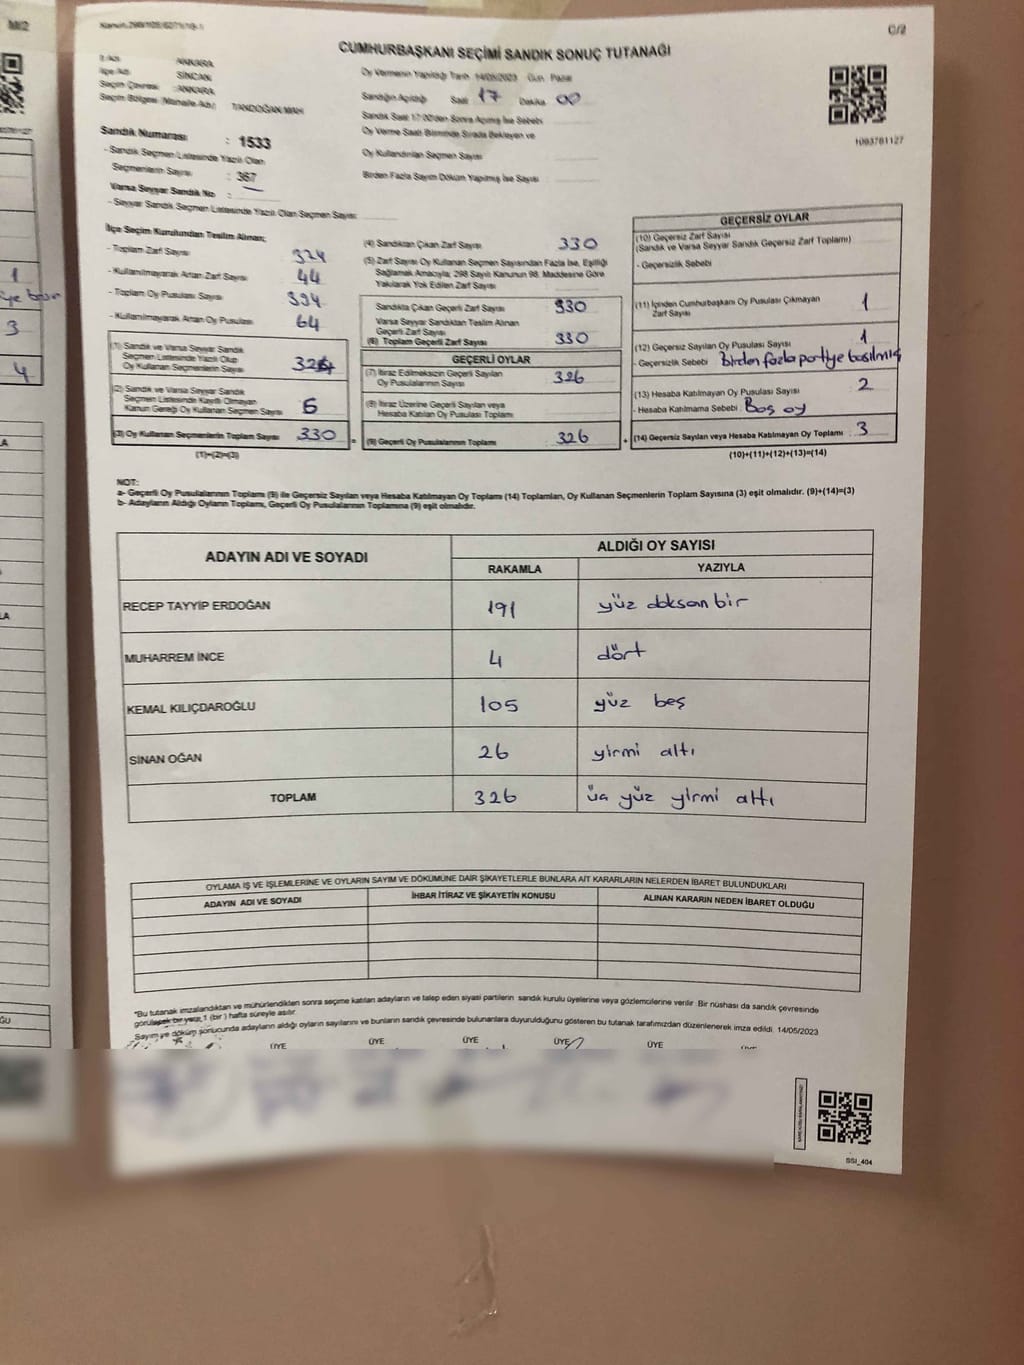 C/2
CUMHURBAŞKANI SEÇİMİ SANDIK SONUÇ TUTANAĞI
İl Adı : ANKARA
İlçe Adı : SİNCAN
Seçim Çevresi : ANKARA
Seçim Bölgesi (Mahalle Adı) : TANDOĞAN MAH.
Sandık Numarası : 1533
- Sandık Seçmen Listesinde Yazılı Olan
Seçmenlerin Sayısı : 367
Varsa Seyyar Sandık No : —
- Seyyar Sandık Seçmen Listesinde Yazılı Olan Seçmen Sayısı
Oy Vermenin Yapıldığı Tarih 14/05/2023 Gün Pazar
Sandığın Açıldığı Saat 17 Dakika 00
Sandık Saat 17:00'den Sonra Açılmış İse Sebebi
Oy Verme Saati Bitiminde Sırada Bekleyen ve
Oy Kullandırılan Seçmen Sayısı
Birden Fazla Sayım Döküm Yapılmış İse Sayısı
1093781127
İlçe Seçim Kurulundan Teslim Alınan;
- Toplam Zarf Sayısı
- Kullanılmayarak Artan Zarf Sayısı 44
- Toplam Oy Pusulası Sayısı 394
- Kullanılmayarak Artan Oy Pusulası 64
(1) Sandık ve Varsa Seyyar Sandık
Seçmen Listesinde Yazılı Olup
Oy Kullanan Seçmenlerin Sayısı
(2) Sandık ve Varsa Seyyar Sandık
Seçmen Listesinde Kayıtlı Olmayan
Kanun Gereği Oy Kullanan Seçmen Sayısı 6
(3) Oy Kullanan Seçmenlerin Toplam Sayısı 330
(1)+(2)=(3)
(4) Sandıktan Çıkan Zarf Sayısı 330
(5) Zarf Sayısı Oy Kullanan Seçmen Sayısından Fazla İse, Eşitliği
Sağlamak Amacıyla, 298 Sayılı Kanunun 98. Maddesine Göre
Yakılarak Yok Edilen Zarf Sayısı
Sandıkta Çıkan Geçerli Zarf Sayısı 330
Varsa Seyyar Sandıktan Teslim Alınan
Geçerli Zarf Sayısı
(6) Toplam Geçerli Zarf Sayısı 330
GEÇERLİ OYLAR
(7) İtiraz Edilmeksizin Geçerli Sayılan
Oy Pusulalarının Sayısı 326
(8) İtiraz Üzerine Geçerli Sayılan veya
Hesaba Katılan Oy Pusulası Toplamı
(9) Geçerli Oy Pusulalarının Toplamı 326
GEÇERSİZ OYLAR
(10) Geçersiz Zarf Sayısı
(Sandık ve Varsa Seyyar Sandık Geçersiz Zarf Toplamı)
- Geçersizlik Sebebi
(11) İçinden Cumhurbaşkanı Oy Pusulası Çıkmayan
Zarf Sayısı 1
(12) Geçersiz Sayılan Oy Pusulası Sayısı 1
- Geçersizlik Sebebi Birden fazla partiye basılmış
(13) Hesaba Katılmayan Oy Pusulası Sayısı 2
- Hesaba Katılmama Sebebi Boş oy
(14) Geçersiz Sayılan veya Hesaba Katılmayan Oy Toplamı 3
(10)+(11)+(12)+(13)=(14)
NOT:
a- Geçerli Oy Pusulalarının Toplamı (9) ile Geçersiz Sayılan veya Hesaba Katılmayan Oy Toplamı (14) Toplamları, Oy Kullanan Seçmenlerin Toplam Sayısına (3) eşit olmalıdır. (9)+(14)=(3)
b- Adayların Aldığı Oyların Toplamı, Geçerli Oy Pusulalarının Toplamına (9) eşit olmalıdır.
ADAYIN ADI VE SOYADI ALDIĞI OY SAYISI
RAKAMLA YAZIYLA
RECEP TAYYİP ERDOĞAN 191 yüz doksan bir
MUHARREM İNCE 4 dört
KEMAL KILIÇDAROĞLU 105 yüz beş
SİNAN OĞAN 26 yirmi altı
TOPLAM 326 üç yüz yirmi altı
OYLAMA İŞ VE İŞLEMLERİNE VE OYLARIN SAYIM VE DÖKÜMÜNE DAİR ŞİKAYETLERLE BUNLARA AİT KARARLARIN NELERDEN İBARET BULUNDUKLARI
ADAYIN ADI VE SOYADI İHBAR İTİRAZ VE ŞİKAYETİN KONUSU ALINAN KARARIN NEDEN İBARET OLDUĞU
*Bu tutanak imzalandıktan ve mühürlendikten sonra seçime katılan adayların ve talep eden siyasi partilerin sandık kurulu üyelerine veya gözlemcilerine verilir. Bir nüshası da sandık çevresinde
görülecek bir yere 1 (bir ) hafta süreyle asılır.
Sayım ve döküm sonucunda adayların aldığı oyların sayılarını ve bunların sandık çevresinde bulunanlara duyurulduğunu gösteren bu tutanak tarafımızdan düzenlenerek imza edildi. 14/05/2023
ÜYE ÜYE ÜYE ÜYE ÜYE
SSI_404